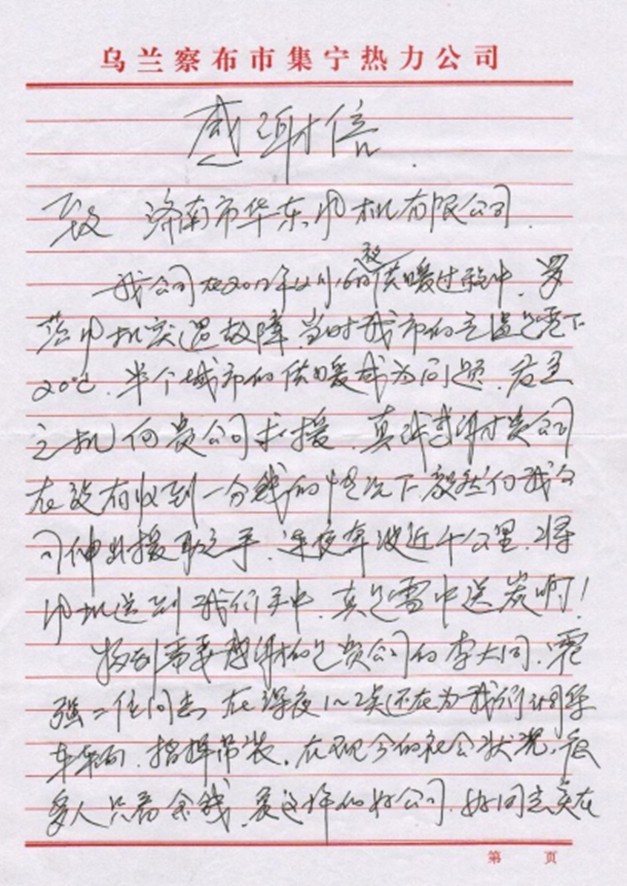 乌兰察布市集宁热力公司
感谢信
致 济南市华东风机有限公司
我公司在2012年12月16日夜供暖过程中,罗
茨风机突遇故障 当时我市的气温是零下
20℃,半个城市的供暖成为问题,
之机向贵公司求援,真诚感谢贵公司
在没有收到一分钱的情况下毅然向我公
司伸出援助之手,连夜奔波近千公里,将
风机送到我们手中,真是雪中送炭啊!
特别需要感谢的是贵公司的李大同、
强二位同志,在深夜1~2点还在为我们
车辆,指挥吊装。在现今的社会状况,很
多人只看金钱,像这样的好公司,好同志实在
第 页